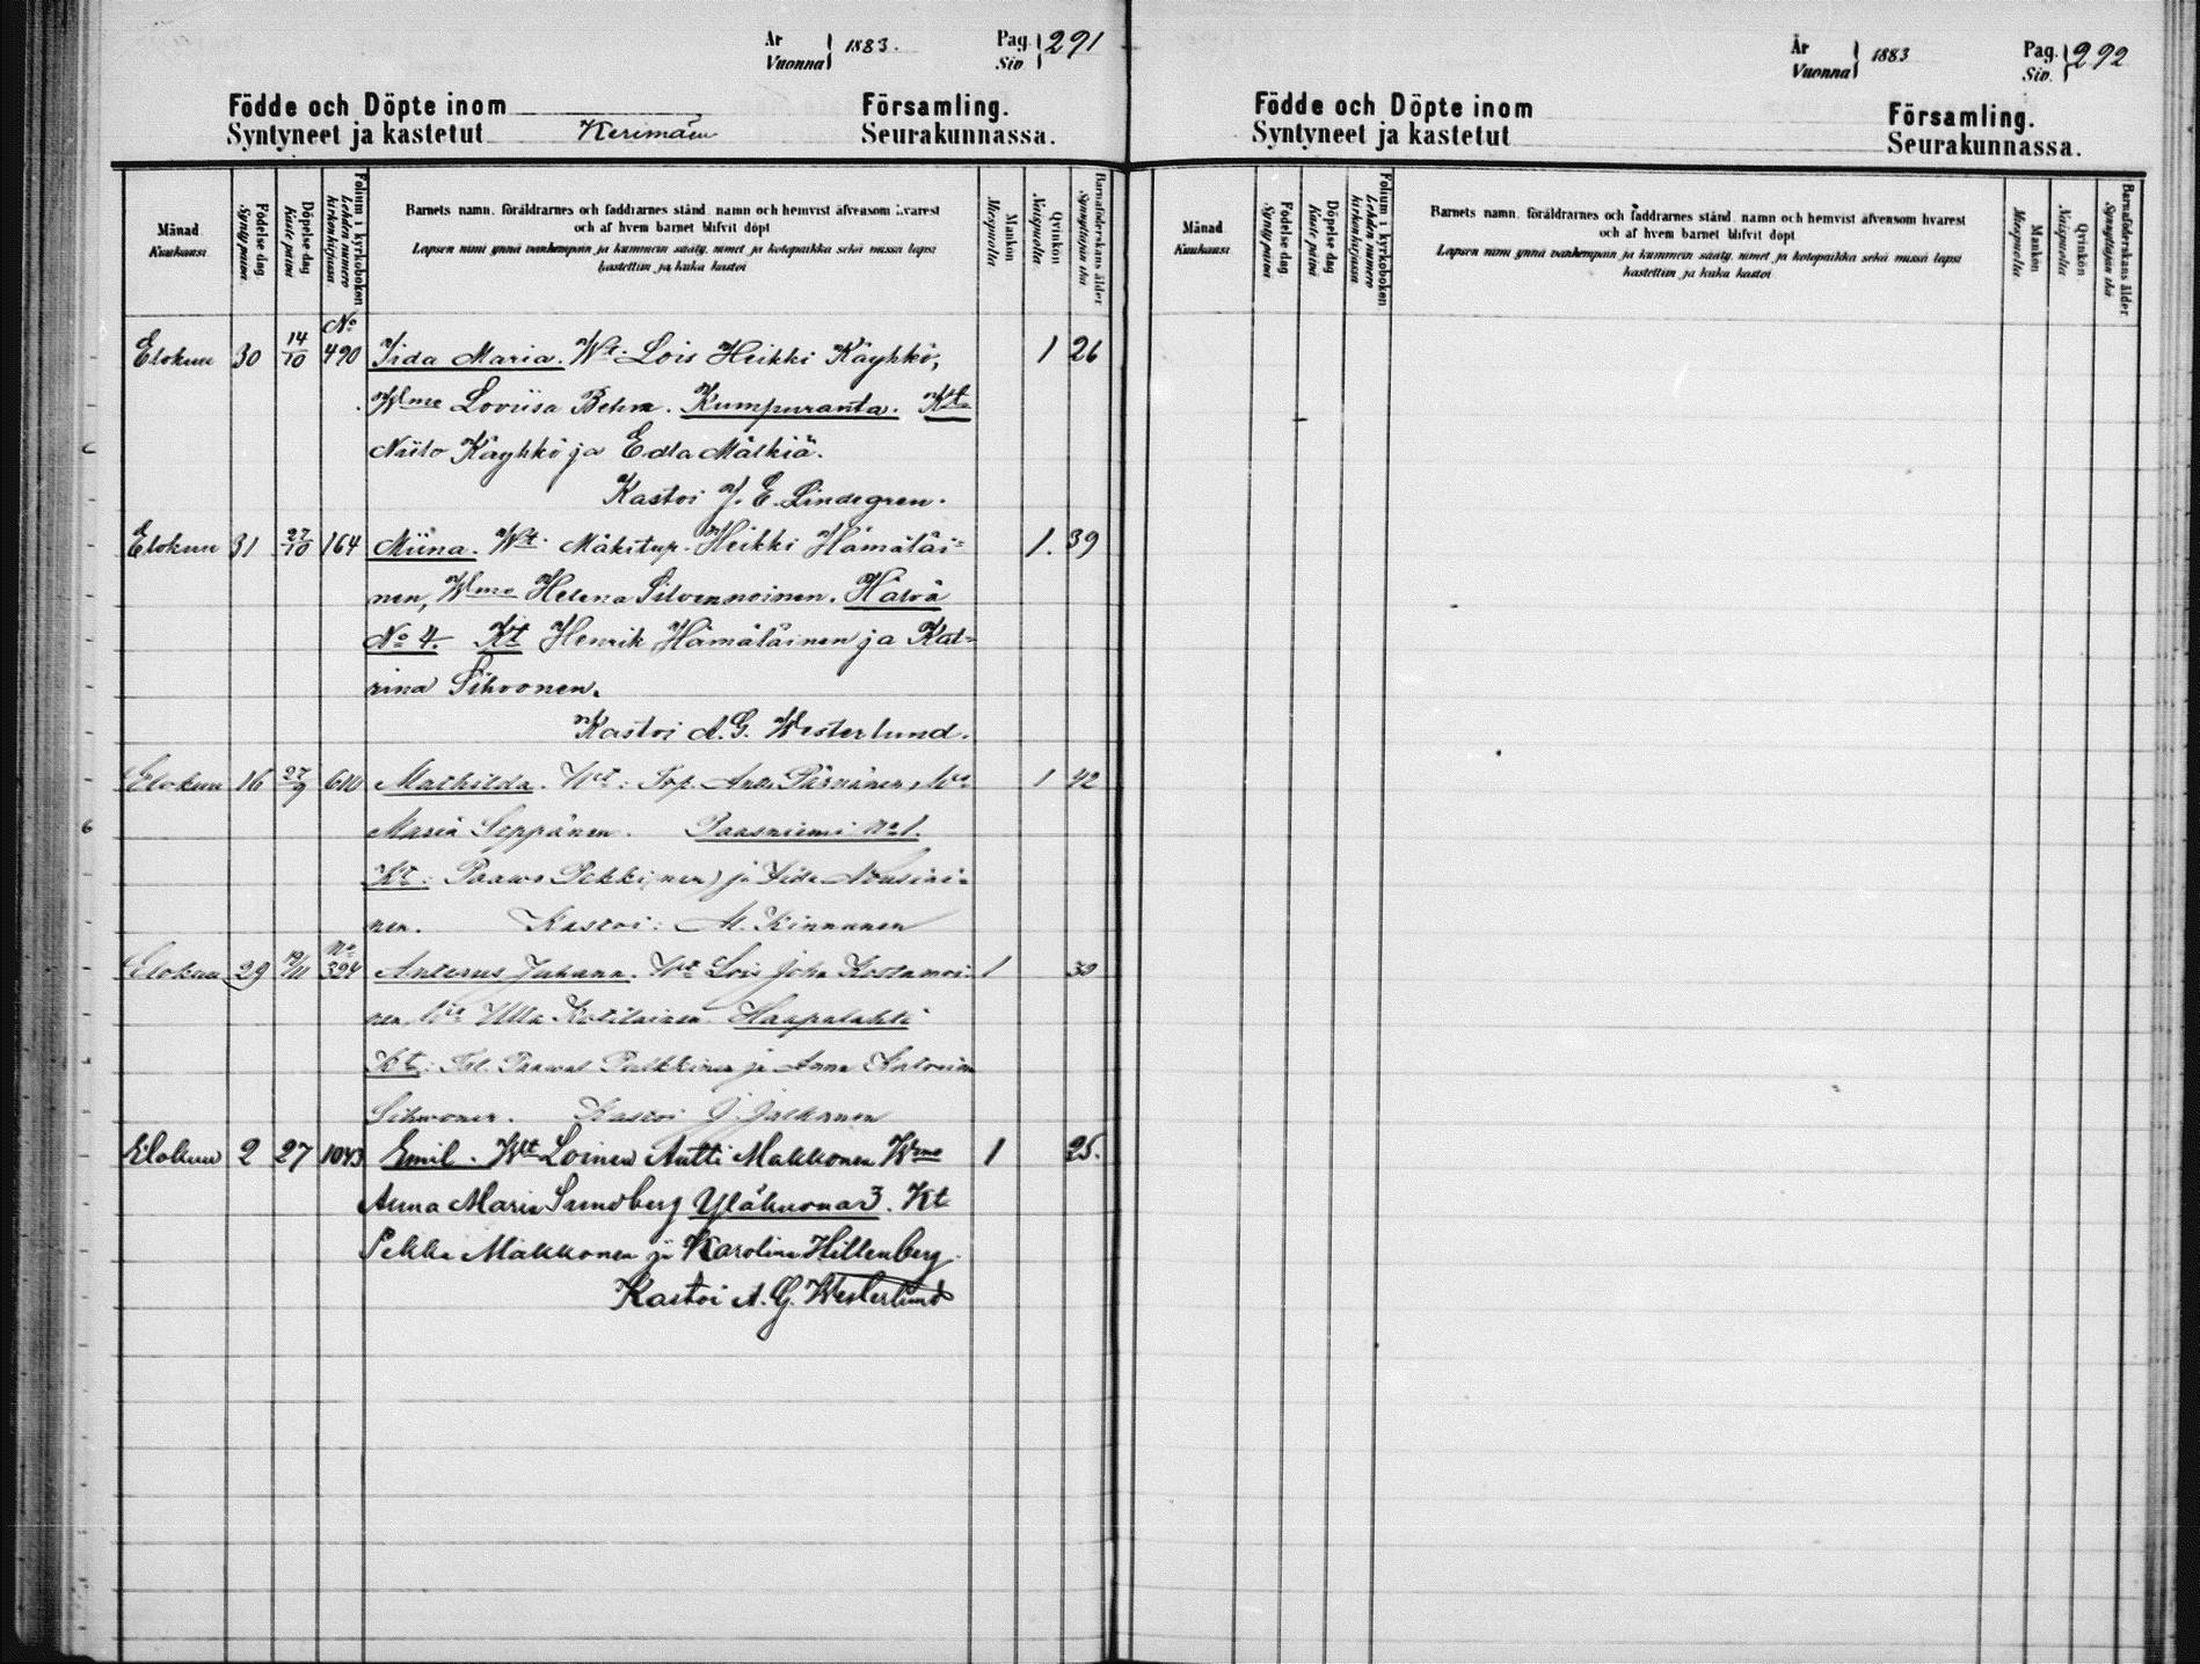 År
Vuonna 1883.
Pag.
Siv. 291
Födde och Döpte inom Församling.
Syntyneet ja kastetut Kerimäen Seurakunnassa.
Månad
Kuukausi
Födelse dag
Synty päivä
Döpelse dag
Kaste päivä
Folium i kyrkoboken
Lehden numero
kirkonkirjassa
Barnets namn, föräldrarnes och faddrarnes stånd, namn och hemvist äfvensom hvarest
och af hvem barnet blifvit döpt
Lapsen nimi ynnä vanhempain ja kummein sääty, nimet ja kotopaikka sekä missä lapsi
kastettiin ja kuka kastoi
Mankön
Miespuolia
Qvinkön
Naispuolia
Barnaföderskans ålder
Synnyttäjän ikä
Elokuu 30 14/10 No 490 Iida Maria. Wt: Lois Heikki Käyhkö, 1 26
Wmo Loviisa Behm. Kumpuranta. Kt
Niilo Käyhkö ja Edla Mälkiä.
Kastoi J. E. Lindegren.
Elokuu 31 27/10 164 Miina. Wt. Mäkitup. Heikki Hämäläi= 1. 39
nen, Wmo Helena Silvennoinen. Hälvä
No 4. Kt Henrik Hämäläinen ja Kat=
rina Sihvonen.
Kastoi A. G. Westerlund.
Elokuu 16 27/9 610 Mathilda. Wt: Antti Pärnänen, 1 42
Maria Seppänen. Paasniemi No 1.
Kt: Paavo Pekki(nen) ja Iida Nousiai=
nen. Kastoi: M. Kinnunen
Elokuu 29 No 324 Anterus Juhana. Wt Lois Joh. Kostamoi= 1 30
nen, Ulla Kotilainen. Haapalahti
Kt: Paaval Pulkkinen ja Anna
Sihvonen. Kastoi J. Jalkanen
Elokuu 2 27 1043 Emil. Wt Loinen Antti Makkonen Wmo 1 25.
Anna Maria Sundberg Yläkuona 3. Kt
Pekka Makkonen ja Karolina Hillenberg.
Kastoi A. G. Westerlund
År
Vuonna 1883
Pag.
Siv. 292
Födde och Döpte inom Församling.
Syntyneet ja kastetut Seurakunnassa.
Månad
Kuukausi
Födelse dag
Synty päivä
Döpelse dag
Kaste päivä
Folium i kyrkoboken
Lehden numero
kirkonkirjassa
Barnets namn, föräldrarnes och faddrarnes stånd, namn och hemvist äfvensom hvarest
och af hvem barnet blifvit döpt
Lapsen nimi ynnä vanhempain ja kummein sääty, nimet ja kotopaikka sekä missä lapsi
kastettiin ja kuka kastoi
Mankön
Miespuolia
Qvinkön
Naispuolia
Barnaföderskans ålder
Synnyttäjän ikä